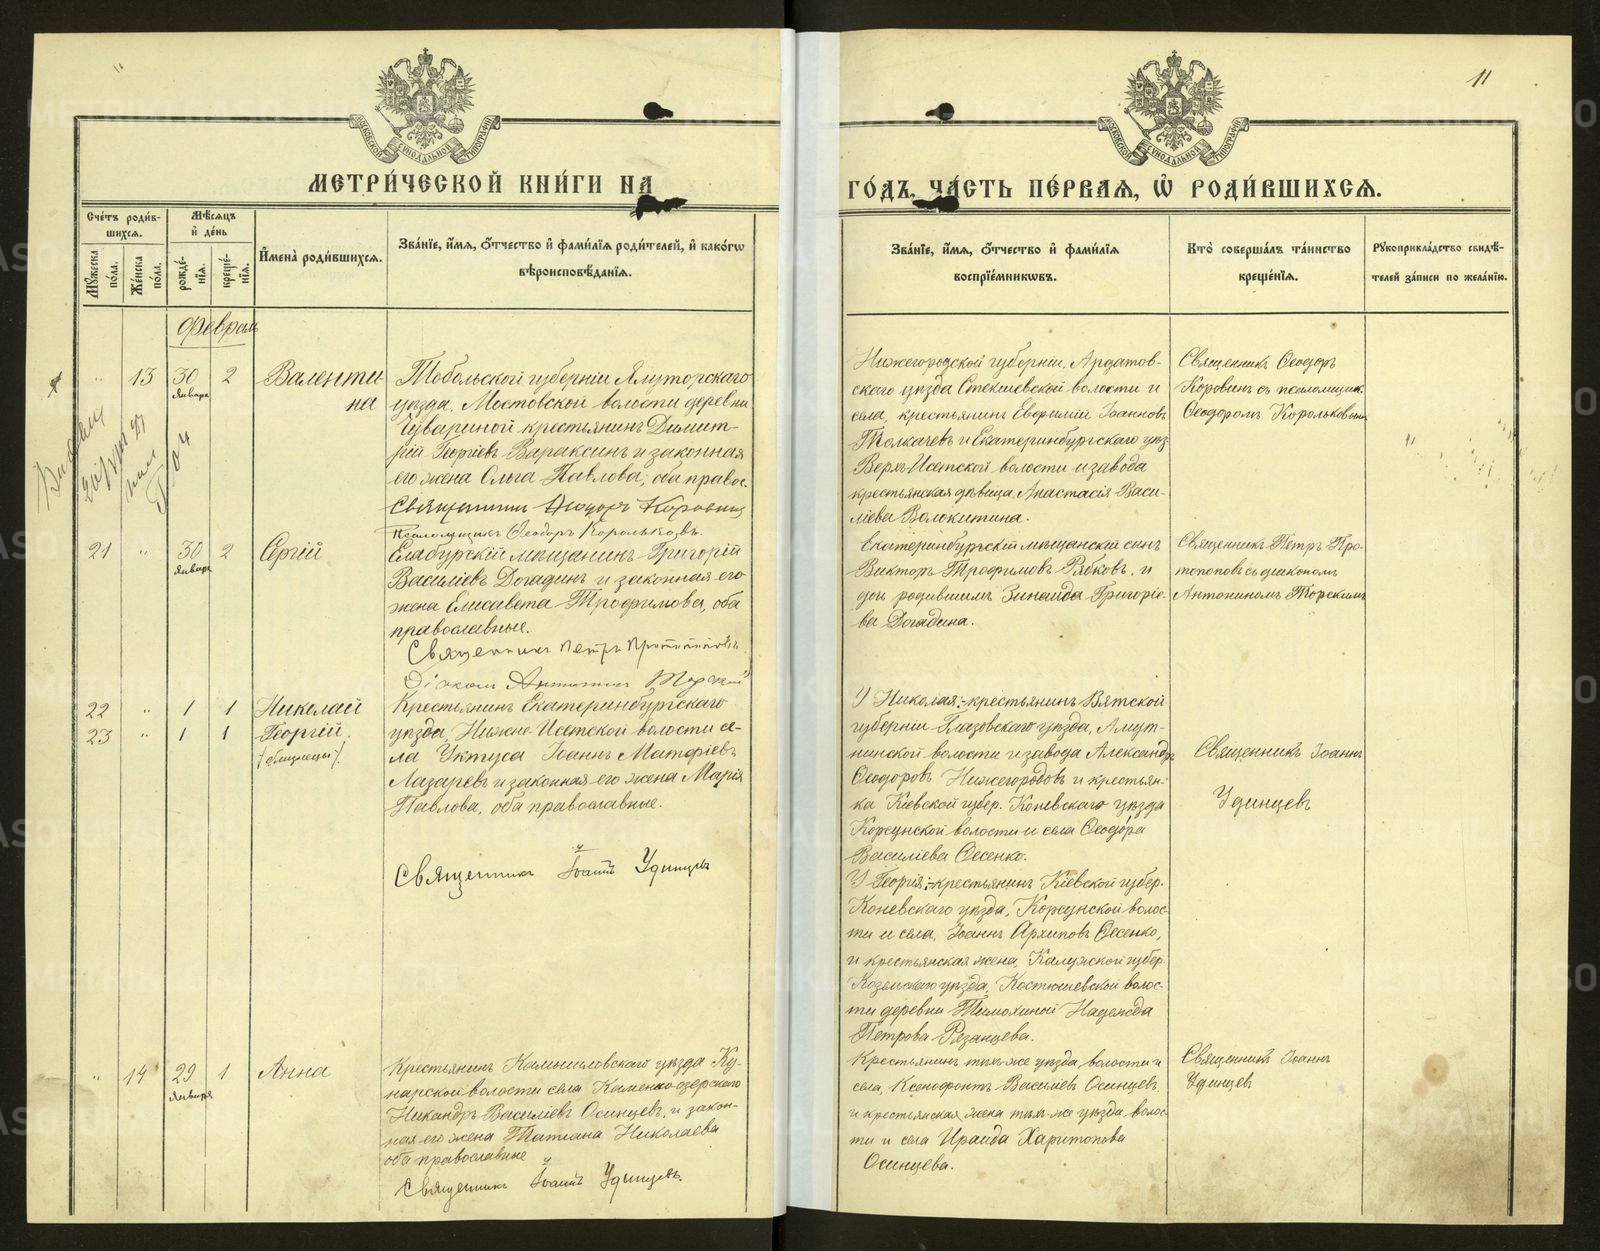 11
МЕТРИ́ЧЕСКОЙ КНИ́ГИ НА
ГО́ДЪ, ЧА́СТЬ ПЕ́РВАЯ, Ѡ҆ РОДИ́ВШИХСЯ.
Сче́тъ роди́в-
шихся.
Мѣ́сяцъ
и҆ де́нь
Мꙋ́жеска по́ла.
Же́нска по́ла.
рожде́-
нїѧ.
креще́-
нїѧ.
И҆мена̀ роди́вшихся.
Зва́нїе, и҆́мѧ, ѻ҆́тчество и҆ фами́лїѧ роди́телей, и҆ како́гѡ
вѣроисповѣ́данїѧ.
Зва́нїе, и҆́мѧ, ѻ҆́тчество и҆ фами́лїѧ
воспрїе́мникѡвъ.
Кто̀ соверша́лъ та́инство
креще́нїѧ.
Рꙋкоприкла́дство свидѣ́-
телей за́писи по жела́нїю.
Февраль
" 13 30 января 2 Валенти
на
Тобольской губерніи Ялуторскаго
уѣзда, Мостовской волости деревни
Уувариной крестьянинъ Димит-
рій Георгіевъ Вараксинъ и законная
его жена Ольга Павлова, оба правос.
Священникъ Ѳеодоръ Коровинъ
Псаломщикъ Ѳеодоръ Корольковъ.
Нижегородской губерніи, Ардатов-
скаго уѣзда Стекшевской волости и
села, крестьянинъ Евѳимій Іоанновъ
Толкачевъ и Екатеринбургскаго уѣз.
Верх-Исетской волости и завода
крестьянская дѣвица Анастасія Васи-
ліева Волокитина.
Священникъ Ѳеодоръ
Коровинъ съ псаломщик.
Ѳеодоромъ Корольковым
21 " 30 января 2 Сергій
Елабужскій мѣщанинъ Григорій
Василіевъ Догадинъ и законная его
жена Елисавета Трофимова, оба
православные.
Священникъ Петръ Протопоповъ
Діаконъ Антонинъ Торскій
Екатеринбургскій мѣщанскій сынъ
Викторъ Трофимовъ Рябковъ, и
дочь родившимъ Зинаида Григоріе-
ва Догадина.
Священникъ Петръ Про-
топоповъ съ діакономъ
Антониномъ Торскимъ
22 " 1 1 Николай
23 " 1 1 Георгій.
/близнецы/.
Крестьянинъ Екатеринбургскаго
уѣзда, Нижне-Исетской волости се-
ла Уктуса Іоаннъ Матѳіевъ
Лазаревъ и законная его жена Марія
Павлова, оба православные.
Священникъ Іоаннъ Удинцевъ
У Николая:- крестьянинъ Вятской
губерніи Глазовскаго уѣзда, Омут-
нинской волости и завода Александръ
Ѳеодоровъ Нижегородовъ и крестьян-
ка Кіевской губер. Коневскаго уѣзда
Корсунской волости и села Ѳеодора
Василіева Фесенко.
У Георгія:- крестьянинъ Кіевской губер.
Коневскаго уѣзда, Корсунской волос-
ти и села, Іоаннъ Архиповъ Фесенко,
и крестьянская жена, Калужской губер.
Козельскаго уѣзда, Костюшевской волос-
ти деревни Тимохиной Надежда
Петрова Рязанцева.
Священникъ Іоаннъ
Удинцевъ
" 14 29 января 1 Анна
Крестьянинъ Камышловскаго уѣзда Ку-
нарской волости села Каменно-озерскаго
Никандръ Василіевъ Осинцевъ, и закон-
ная его жена Татіана Николаева
оба православные
Священникъ Іоаннъ Удинцевъ.
Крестьянинъ тѣхъ-же уѣзда, волости и
села, Ксенофонтъ Василіевъ Осинцевъ,
и крестьянская жена тѣхъ-же уѣзда, волос-
ти и села Ираида Харитонова
Осинцева.
Священникъ Іоаннъ
Удинцев